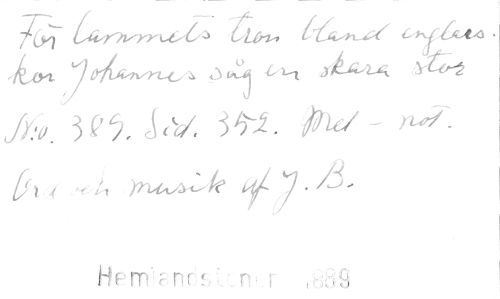 För lammets tron bland englars.
kor Johannes såg en skara stor
N:o. 389. Sid. 352. Mel - not.
Ord och musik af J. B.
Hemlandstoner 1889